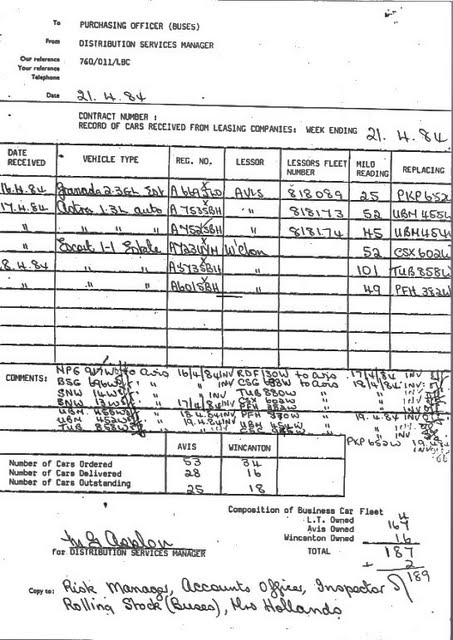 To PURCHASING OFFICER (BUSES)
From DISTRIBUTION SERVICES MANAGER
Our reference 760/011/LBC
Your reference
Telephone
Date 21.4.84
CONTRACT NUMBER :
RECORD OF CARS RECEIVED FROM LEASING COMPANIES: WEEK ENDING 21.4.84
DATE RECEIVED VEHICLE TYPE REG. NO. LESSOR LESSORS FLEET NUMBER MILO READING REPLACING
16.4.84 Granada 2.3GL Est AVIS 818089 25 PKP 652
17.4.84 Astra 1.3L auto A753SBH " 818173 52 UBM 455W
" " A752SBH " 818174 45 UBM 454
" Escort 1-1 Estate W'ton 52 CSX 602W
8.4.84 " " A573SBH " 101 TUB 858W
" " " A601SBH " 49 PFH 382W
COMMENTS: to Avis 16/4/84 INV RDF 130W to Avis 17/4/84 INV
BSG 696W " " INV to Avis 18/4/84 INV
SNW 14W " " TUB 880W " "
SNW 13W " 17/4/84 INV
18.4.84 INV 19.4.84
19.4.84 INV
PKP 652W
AVIS WINCANTON
Number of Cars Ordered 53 34
Number of Cars Delivered 28 16
Number of Cars Outstanding 25 18
Composition of Business Car Fleet
L.T. Owned 4
Avis Owned 167
Wincanton Owned 16
TOTAL 187
+ 2
189
for DISTRIBUTION SERVICES MANAGER
Copy to: Risk Manager, Accounts Officer, Inspector
Rolling Stock (Buses), Mrs Hollands